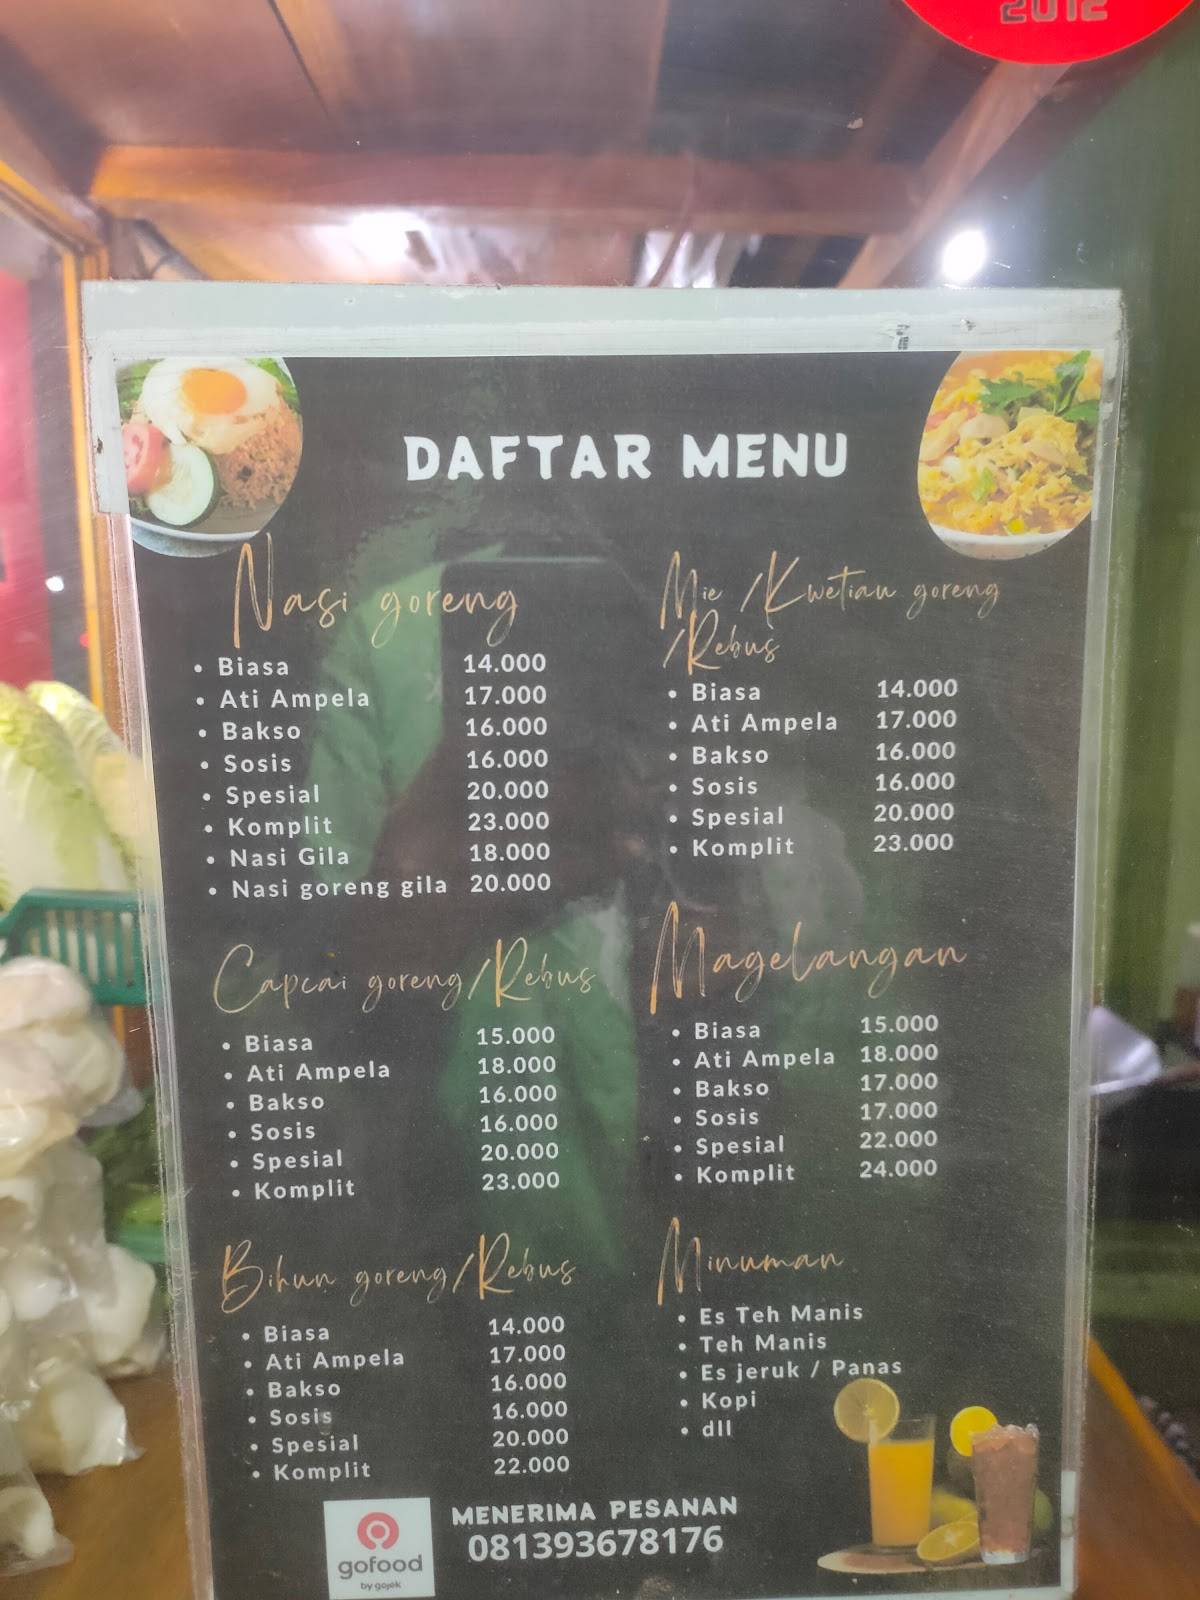 2012
DAFTAR MENU
Nasi goreng
• Biasa 14.000
• Ati Ampela 17.000
• Bakso 16.000
• Sosis 16.000
• Spesial 20.000
• Komplit 23.000
• Nasi Gila 18.000
• Nasi goreng gila 20.000
Mie /Kwetiau goreng
/Rebus
• Biasa 14.000
• Ati Ampela 17.000
• Bakso 16.000
• Sosis 16.000
• Spesial 20.000
• Komplit 23.000
Capcai goreng/Rebus
• Biasa 15.000
• Ati Ampela 18.000
• Bakso 16.000
• Sosis 16.000
• Spesial 20.000
• Komplit 23.000
Magelangan
• Biasa 15.000
• Ati Ampela 18.000
• Bakso 17.000
• Sosis 17.000
• Spesial 22.000
• Komplit 24.000
Bihun goreng/Rebus
• Biasa 14.000
• Ati Ampela 17.000
• Bakso 16.000
• Sosis 16.000
• Spesial 20.000
• Komplit 22.000
Minuman
• Es Teh Manis
• Teh Manis
• Es jeruk / Panas
• Kopi
• dll
gofood
by gojek
MENERIMA PESANAN
081393678176